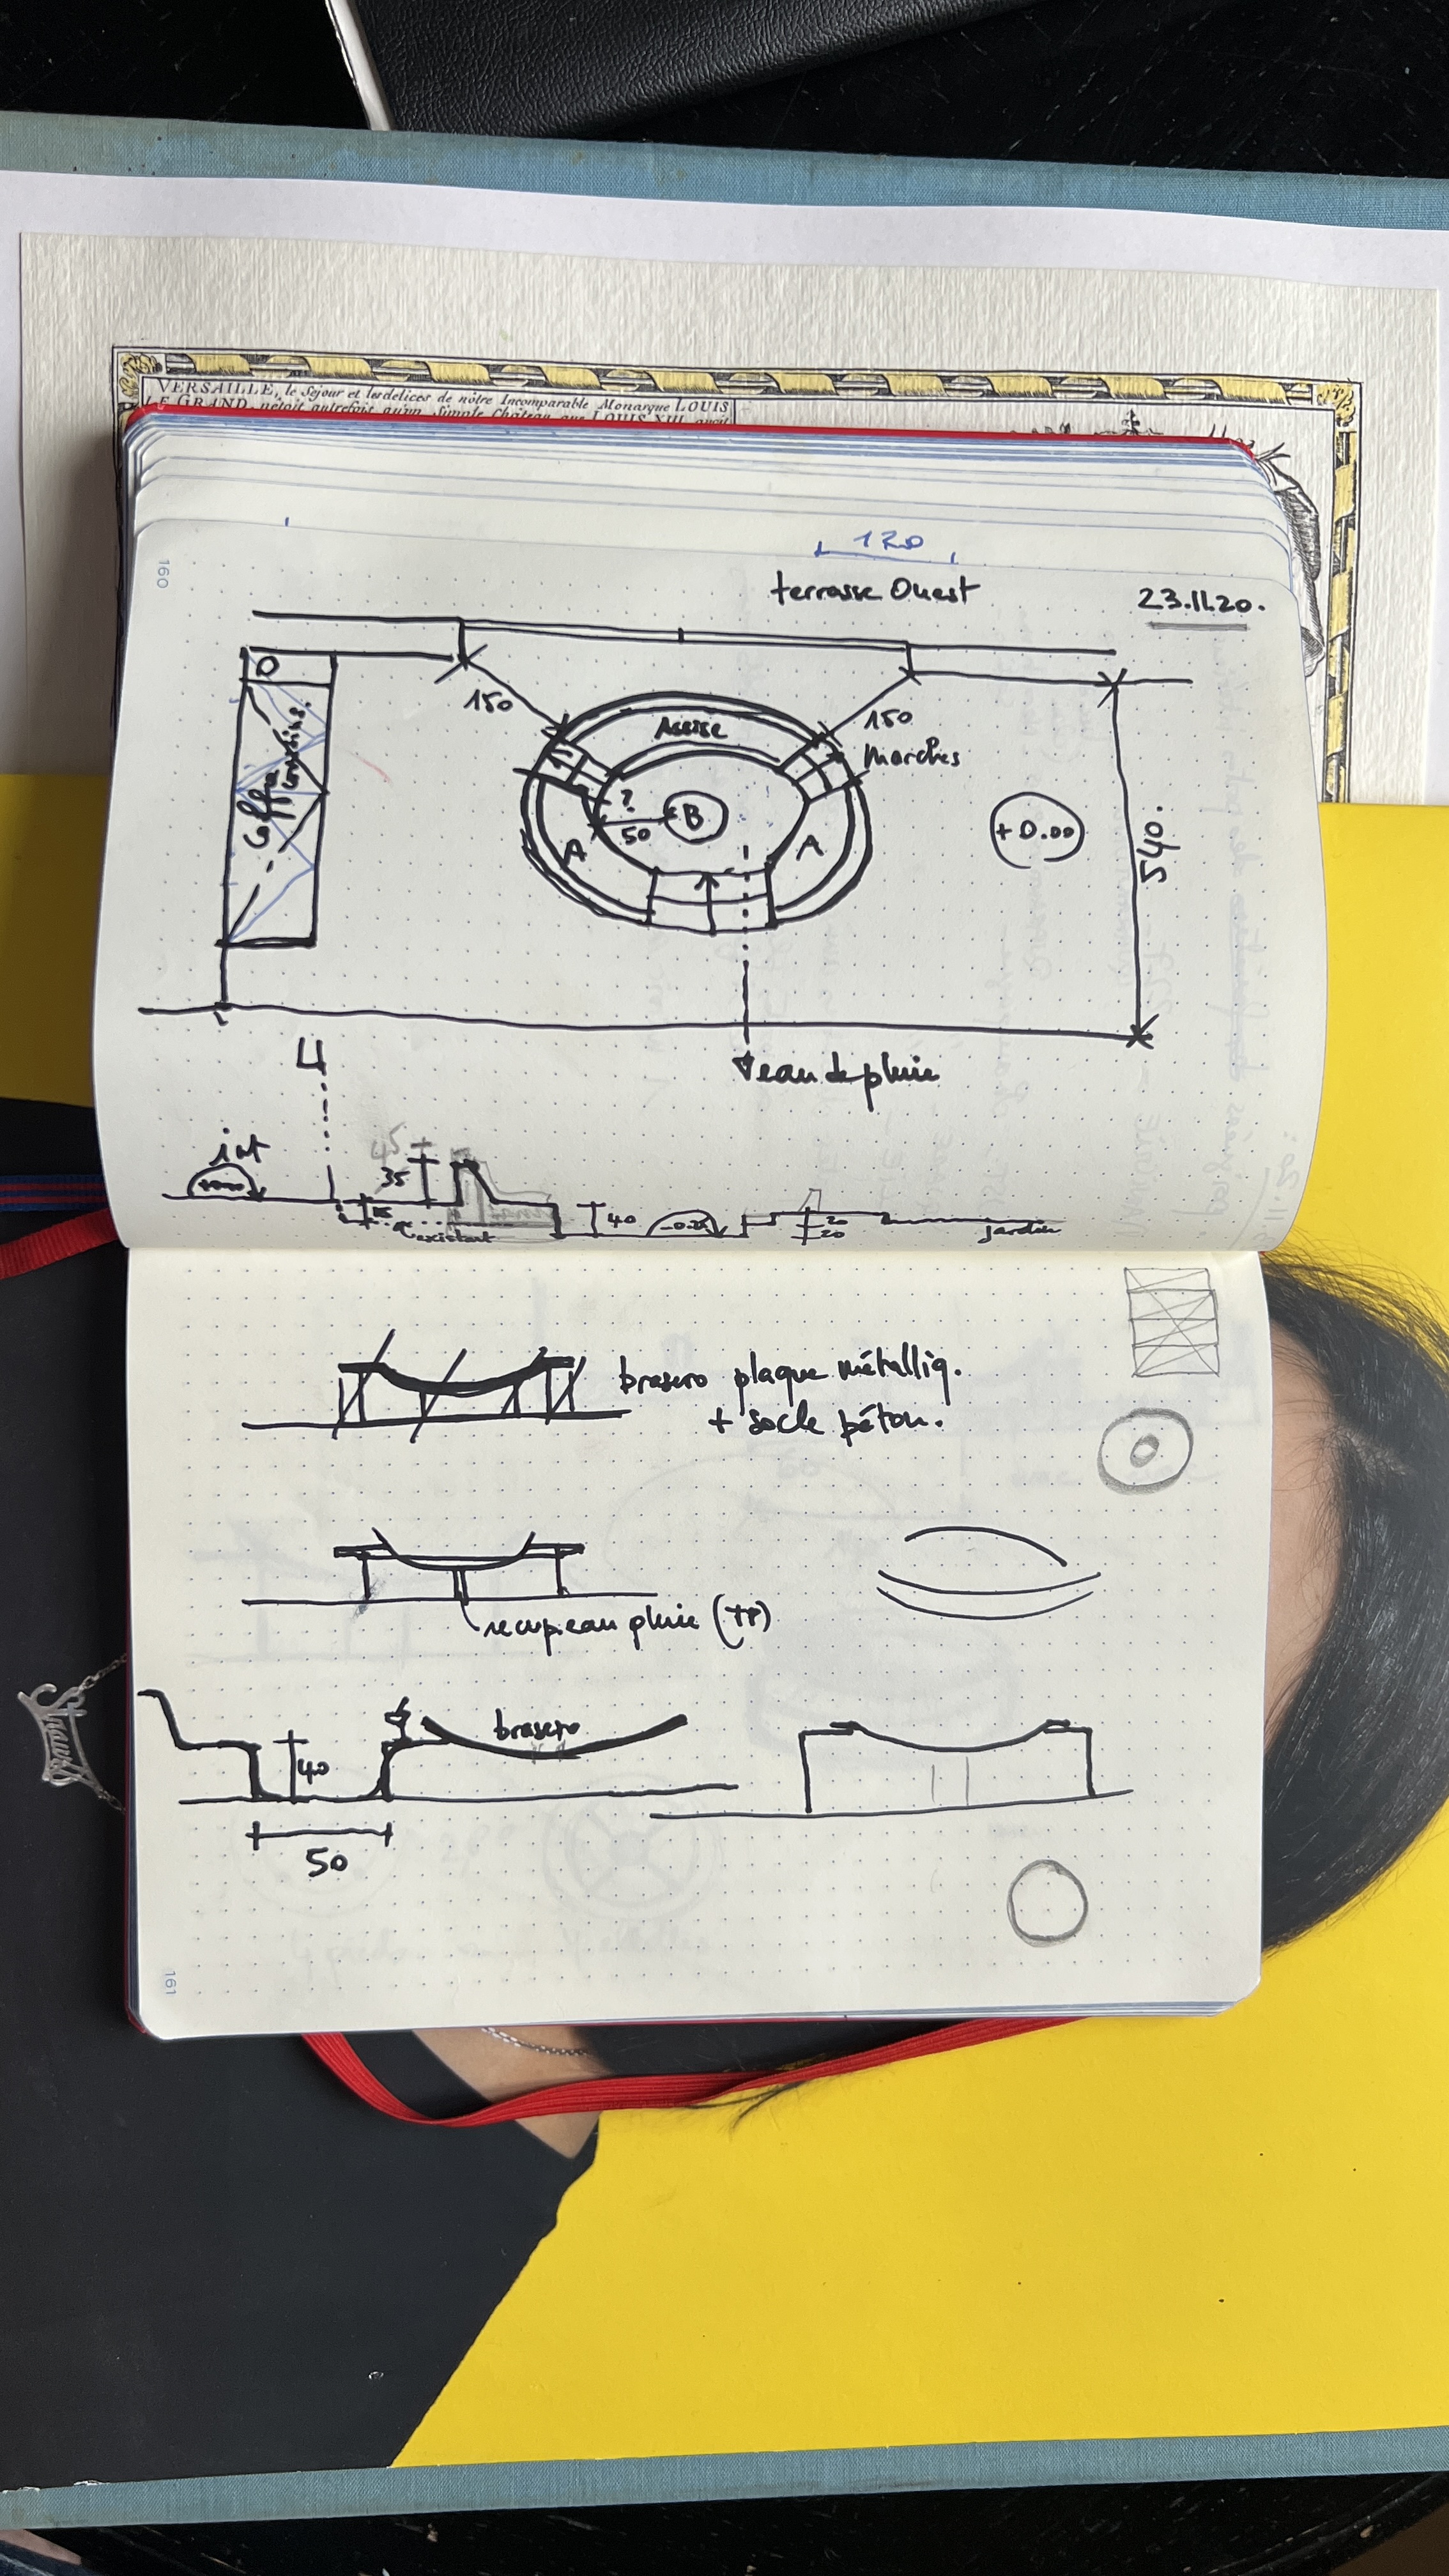 VERSAILLE, le Sejour et les delices de nôtre Incomparable Monarque LOUIS
LE GRAND, nétoit autrefois qu'un Simple Château que LOUIS XIII avoit
160
120
terrasse Ouest
23.11.20.
D
150
150
Assise
Marches
Coffre
coussins.
?
50
B
A
A
+0.00
540.
eau de pluie
int
45
35
existant
40
20
20
jardin
brasero plaque métalliq.
+ socle béton.
recup. eau pluie (TP)
brasero
40
50
161